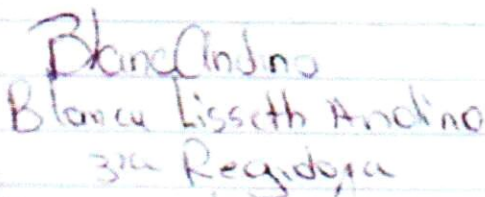 BlancAndino
Blanca Lisseth Andino
3ra Regidora